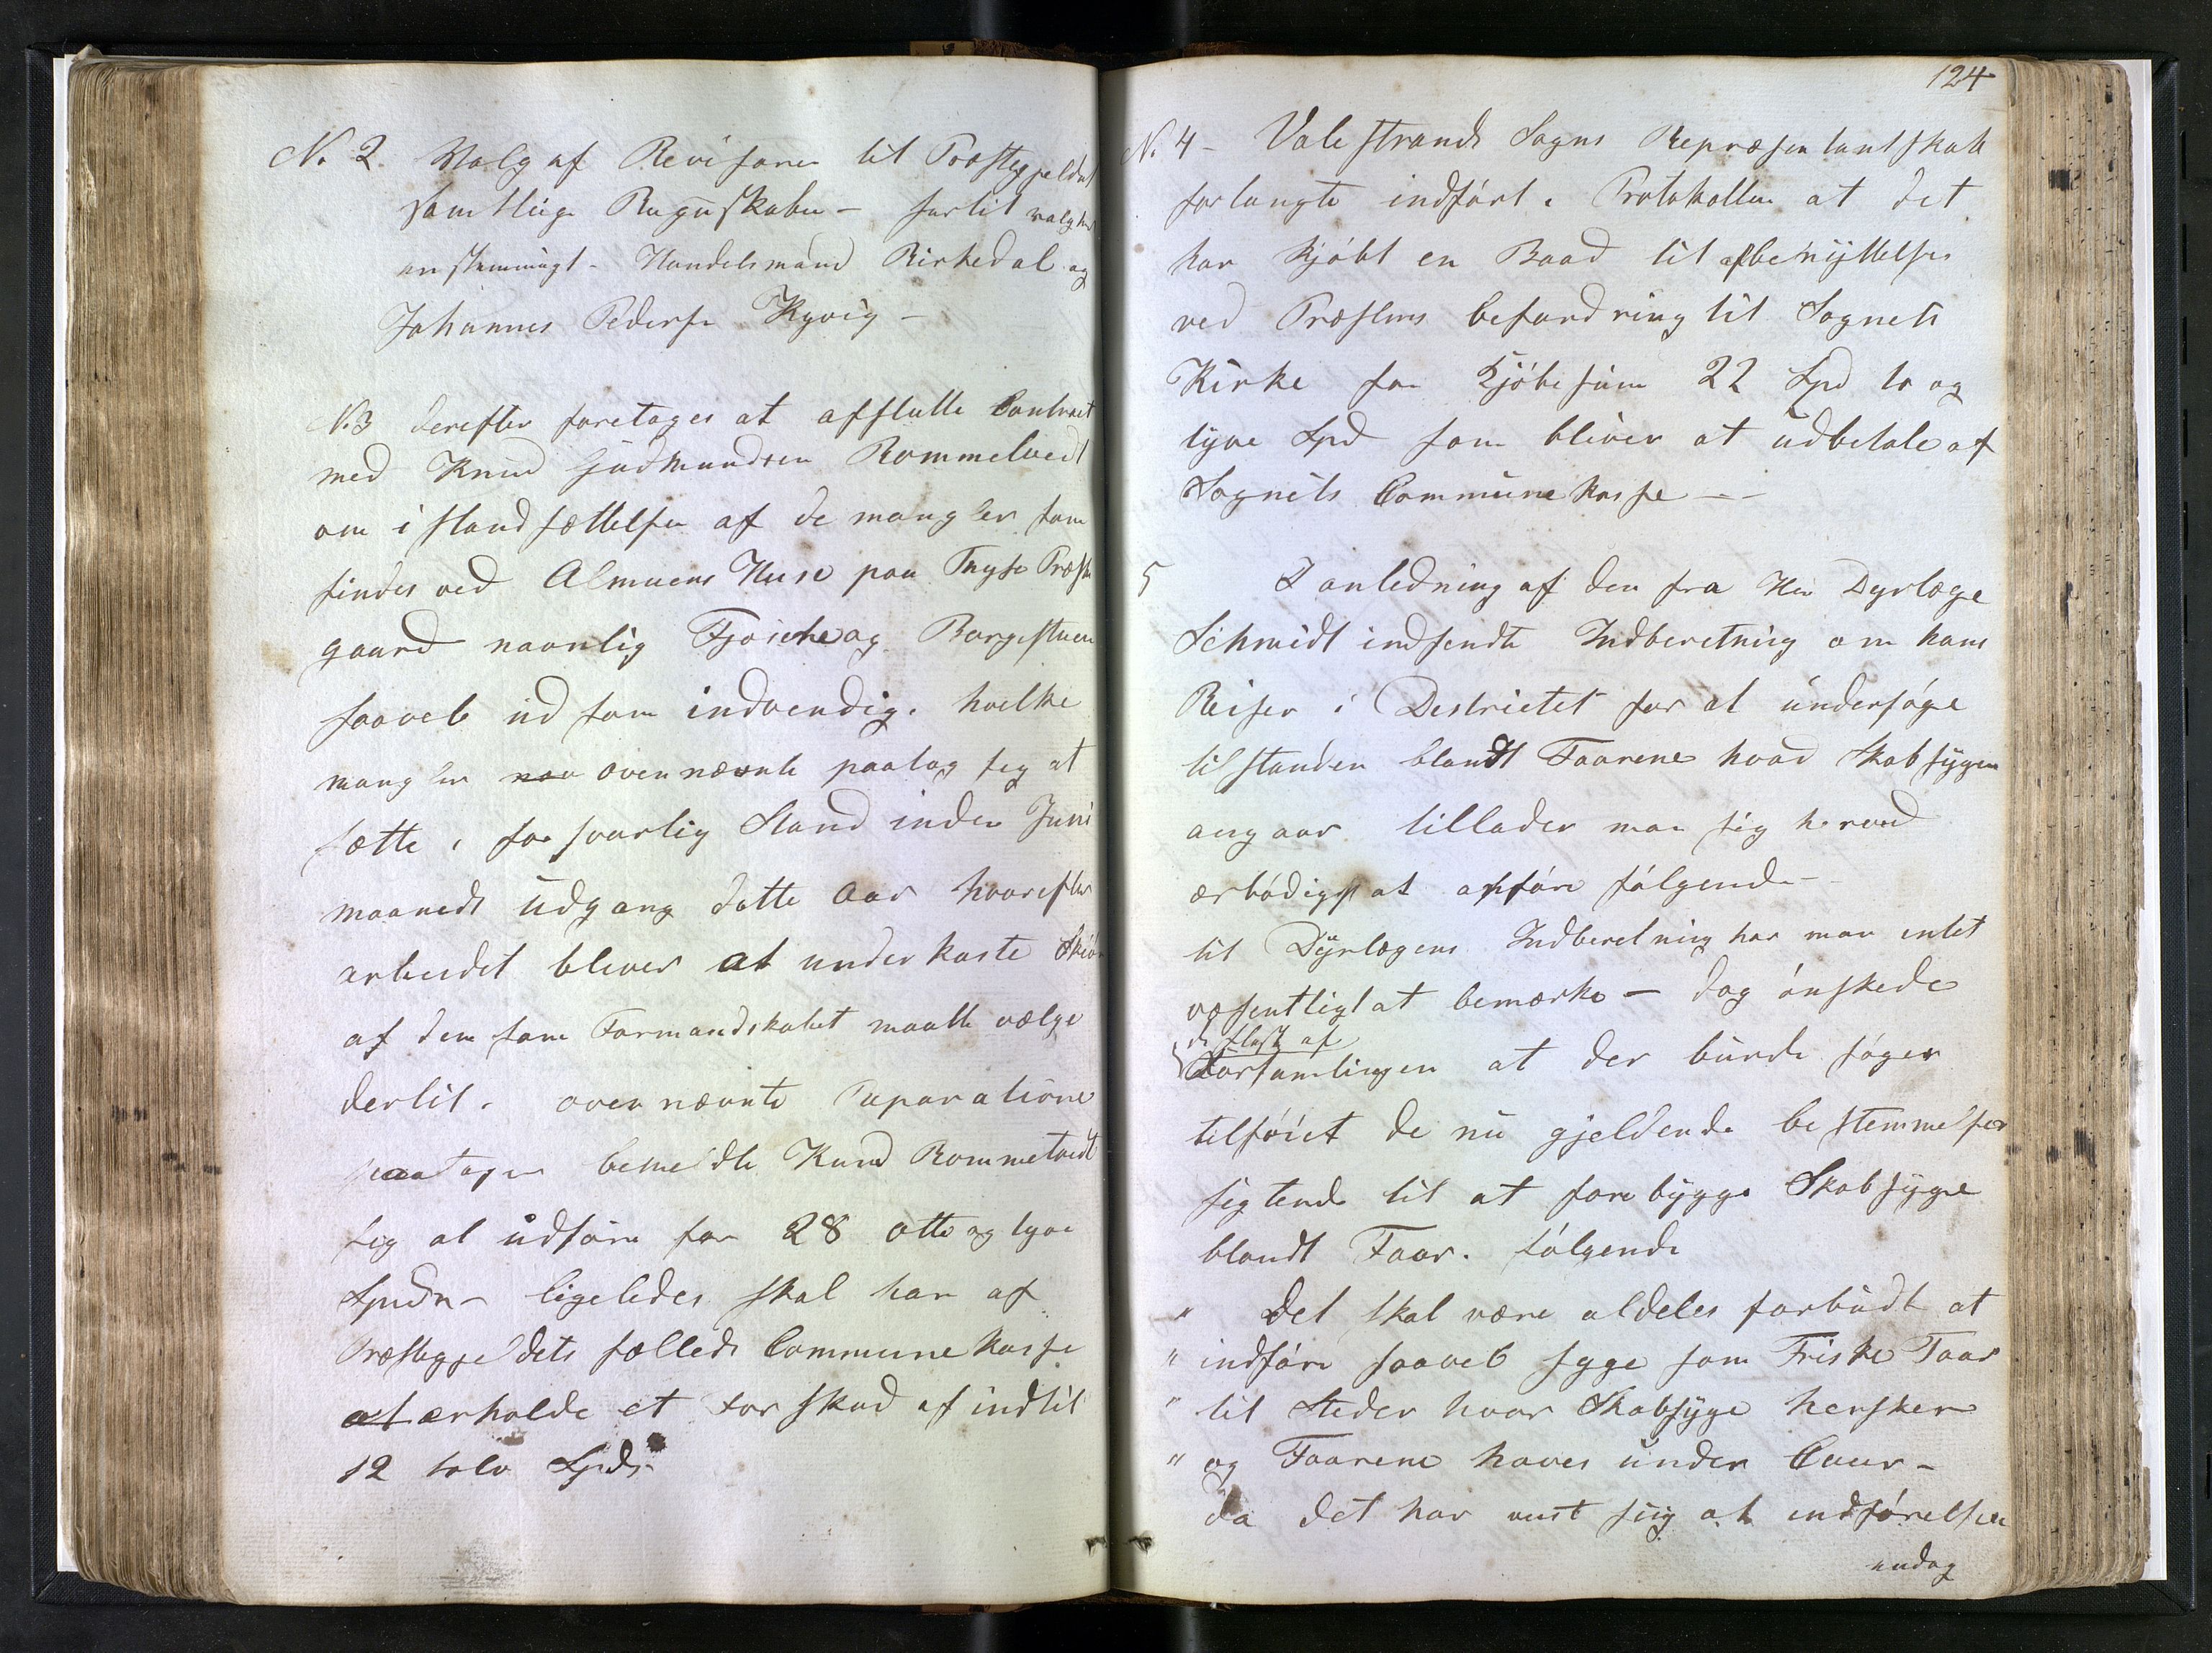 No 2. Valg af Revisorer til Præstegjeldets
samtlige Regnskaber - hertil valgtes
enstemmigt - Handelsmand Birkedal og
Johannes Pedersen Kyvig -
No 3 derefter foretages at afslutte Contract
med Knud Gudmundsen Rommetvedt
om istandsættelsen af de mangler som
findes ved Almuens Huse paa Fnyse Præste
gaard navnlig Fjøsene og Borgestuen
saavel ud som indvendig. hvilke
mangler ovennævnte paatog sig at
sætte i forsvarlig Stand inden Juni
maaneds Udgang dette Aar hvorefter
arbeidet bliver at underkaste Skiøn
af dem som Formandskabet maatte vælge
dertil. ovennævnte Reparationer
paatager bemeldte Knud Rommetvedt
sig at udføre for 28 otte og tyve
Spdr - ligeledes skal han af
Præstegjeldets fælleds Commune kasse
at erholde et Forskud af indtil
12 tolv Spdr
124
No. 4 - Valestrands Sogns Repræsentantskab
forlangte indført i Protokollen at det
har kjøbt en Baad til afbenyttelse
ved Præstens befordring til Sognets
Kirke for Kjøbesum 22 Spd to og
tyve Spd som bliver at udbetale af
Sognets Commune kasse - -
5 I anledning af den fra Hr Dyrlæge
Schmidt indsendte Indberetning om hans
Reiser i Destrictet for at undersøge
tilstanden blandt Faarene hvad Skabsygen
angaar tillader man sig herved
ærbødigst at anføre følgende -
til Dyrlægens Indberetning har man intet
væsentligt at bemærke - dog ønskede
de fleste af
Forsamlingen at der burde søges
tilføiet de nu gjeldende bestemmelser
sigtende til at forebygge Skabsyge
blandt Faar. følgende
" Det skal være aldeles forbudt at
" indføre saavel syge som Friske Faar
" til Steder hvor Skabsyge hersker
" og Faarene haves under Cuur -
da det har viist sig at indførelsen
endog